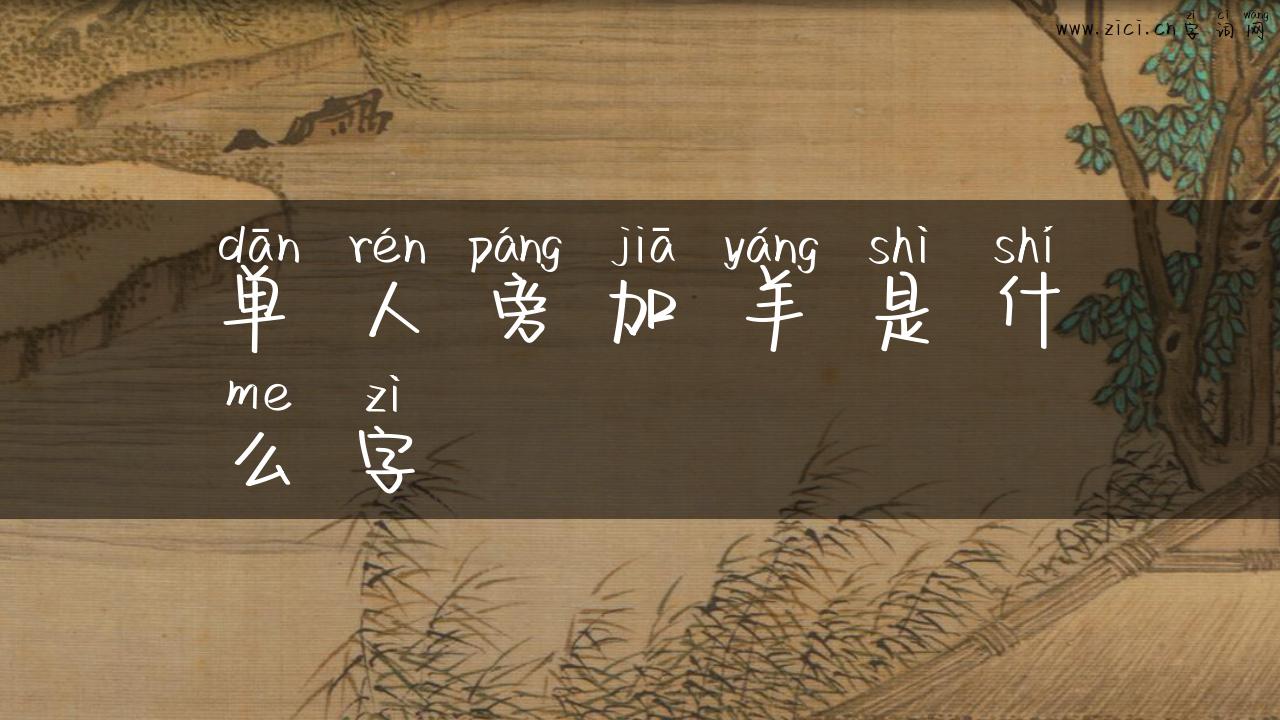 zì cí wǎng
www.zici.cn字词网
dān rén páng jiā yáng shì shí
单人旁加羊是什
me zì
么字